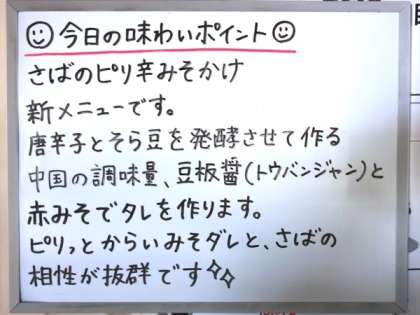 今日の味わいポイント
さばのピリ辛みそかけ
新メニューです。
唐辛子とそら豆を発酵させて作る
中国の調味量、豆板醤(トウバンジャン)と
赤みそでタレを作ります。
ピリっとからいみそダレと、さばの
相性が抜群です